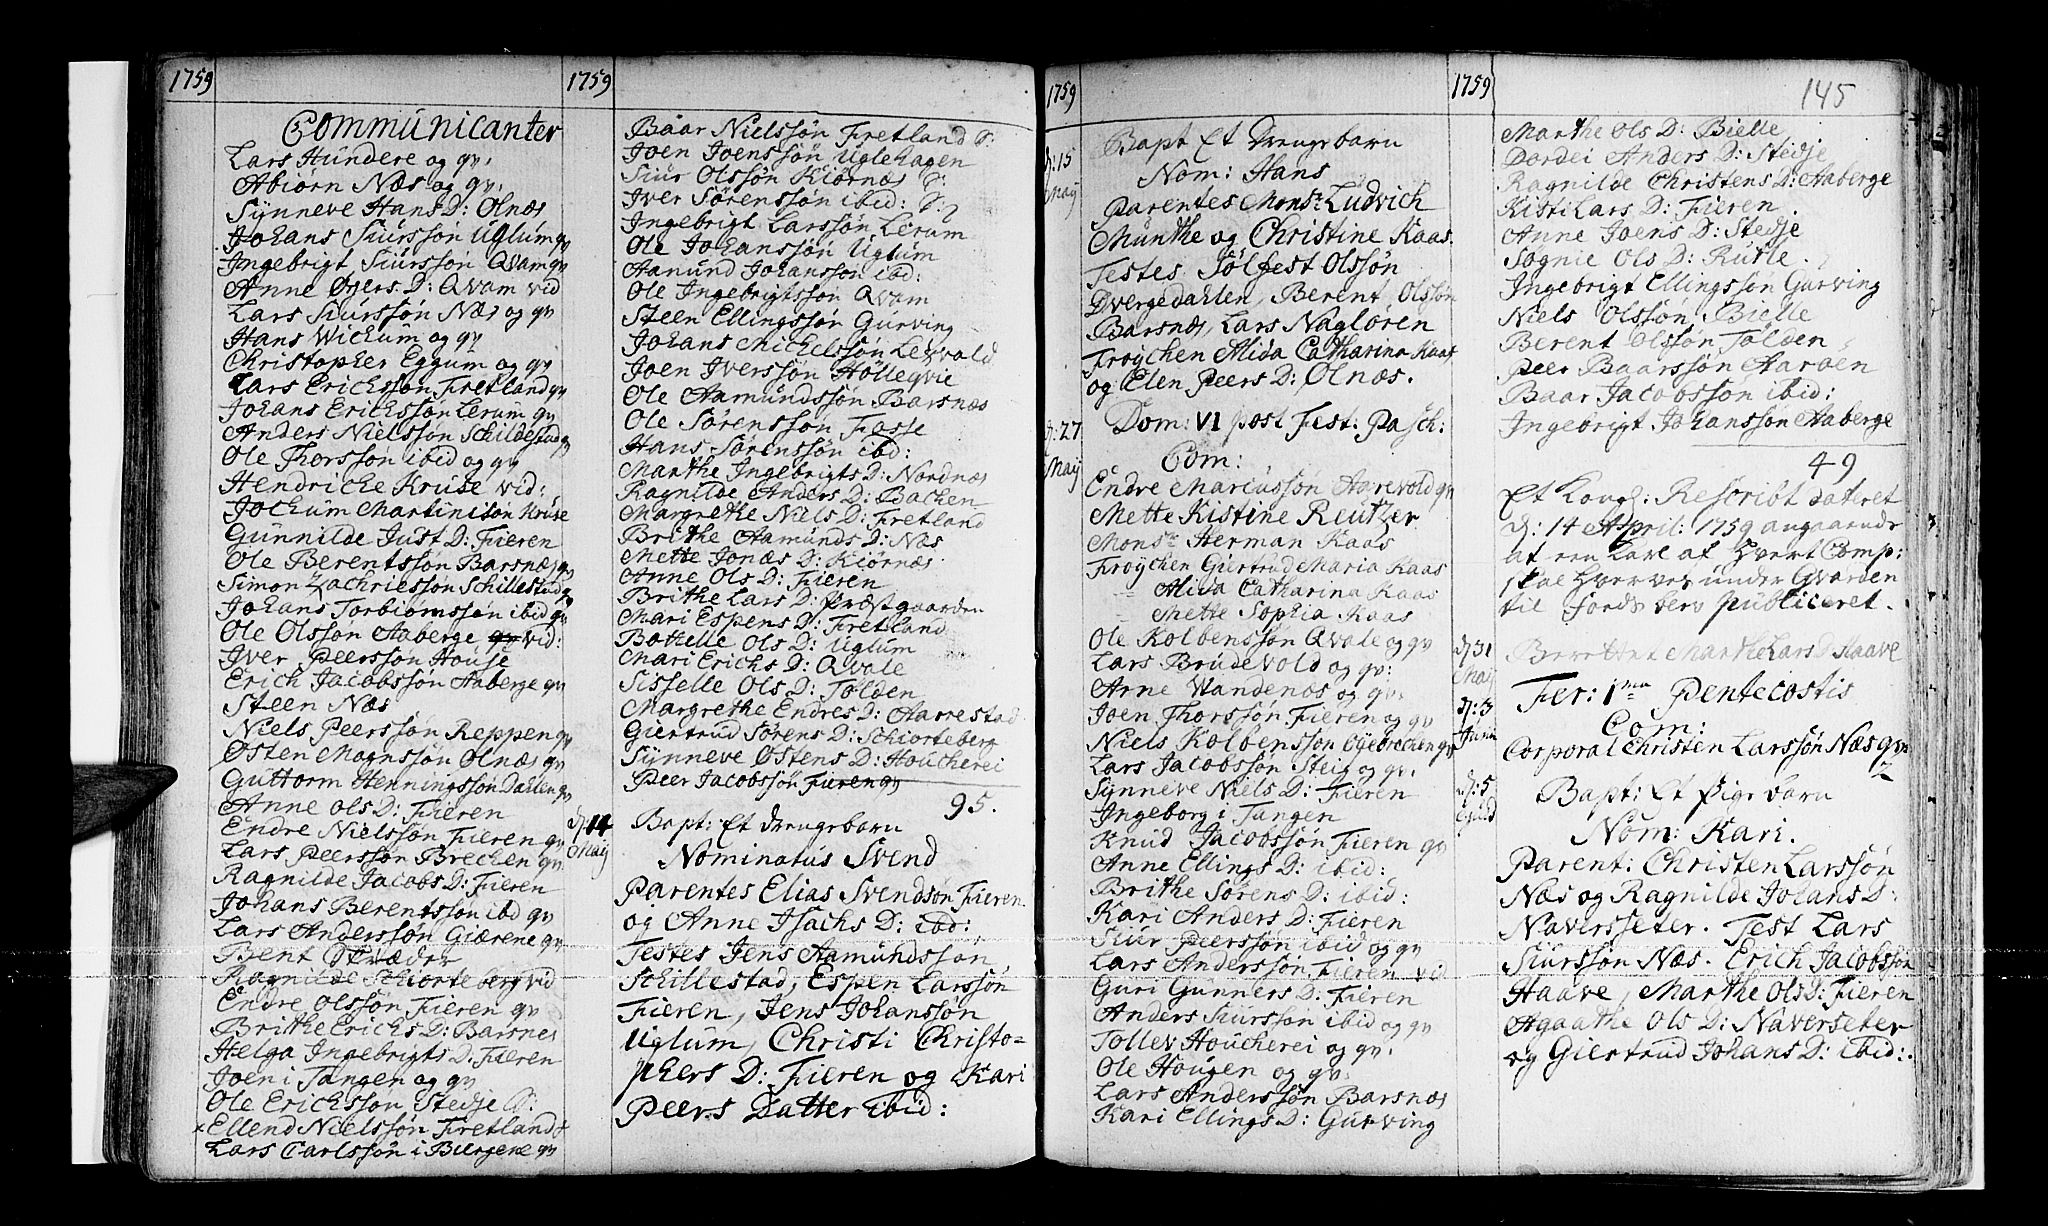 1759
Communicanter
Lars Hundere og qv:
Abiørn Næs og qv:
Synneve Hans D: Olnæs
Johans Siursson Uglum qv
Ingebrigt Siursson Qvam qv
Anne Øyers D: Qvam vid
Lars Siursson Næs og qv
Hans Wichum og qv
Christopher Eggum og qv
Lars Ericksson Fretland qv
Johans Ericksson Lerum qv
Anders Nielssøn Schildestad qv
Ole Thorssøn ibid og qv
Hendriche Kruse vid:
Jochum Martinison Kruse
Gunnilde Just D: Fieren
Ole Berentssøn Barsnæs qv
Simon Zachriesson Schillestad qv
Johans Torbiørnsson ibid qv
Ole Olsson Aaberge qv vid:
Iver Peerssøn House
Erich Jacobssøn Aaberge qv
Steen Næs
Niels Peerssøn Reppen qv
Østen Magnssøn Olnæs qv
Guttorm Henningssøn Dahlen qv
Anne Ols D: Fieren
Endre Nielssøn Fieren qv
Lars Peerssøn Brechen qv
Ragnilde Jacobs D: Fieren
Johans Berentssøn ibd qv
Lars Anderssøn Giærene qv
Bent Skræder
Ragnilde Schiorteberg vid
Endre Olssøn Fieren qv
Brithe Erichs D: Barsnes
Helga Ingebrigts D: Fieren
Joen i Tangen og qv
Ole Ericksson Stedje S:
Ellend Nielssøn Fretland
Lars Carlssøn i Biergene qv
1759
Baar Nielssøn Fretland S:
Joen Joenssøn Uglehagen
Siur Olssøn Kiørnæs S:
Iver Sørenssøn ibid: S:
Ingebrigt Larssøn Lerum
Ole Johanssøn Uglum
Aamund Johanssøn ibid:
Ole Ingebrigtssøn Qvam
Steen Ellingssøn Gurving
Johans Michelssøn Lervold
Joen Iverssøn Hølleqvie
Ole Aamundssøn Barsnæs
Ole Sørenssøn Fosse
Hans Sørenssøn ibd:
Marthe Ingebrigts D: Nordnæs
Ragnilde Anders D: Bachen
Margrethe Niels D: Fretland
Brithe Aamunds D: Næs
Mette Jonæs D: Kiørnæs
Anne Ols D: Fieren
Brithe Lars D: Præstgaarden
Mari Espens D: Fretland
Bottelle Ols D: Uglum
Mari Erichs D: Qvale
Sisselle Ols D: Tølden
Margrethe Endres D: Aarrestad
Giertrud Sørens D: Schiorteberg
Synneve Østens D: Houcherei
Peer Jacobssøn Fieren qv
95.
d: 14 Maij
Bapt: Et drengebarn
Nominatus Svend
Parentes Elias Svendson Fieren
og Anne Isachs D: ibd:
Testes Jens Aamundsson
Schillestad, Espen Larssøn
Fieren, Jens Johanssøn
Uglum, Christi Christo=
phers D: Fieren og Kari
Peers Datter ibid:
1759
d: 15 Maij
Bapt Et Drengebarn
Nom: Hans
Parentes Monsr: Ludvich
Munthe og Christine Kaas.
Testes Sølfest Olssøn
Dvergedahlen, Berent Olssøn
Barsnæs, Lars Nagløren
Frøychen Alida Catharina Kaas
og Elen Peers D: Olnæs.
d: 27 Maij
Dom: VI post Fest: Pasch:
Com:
Endre Mariusson Aarevold qv
Mette Kistine Reutzer
Monsr Herman Kaas
Frøychen Giertrud Maria Kaas
Alida Catharina Kaas
Mette Sophia Kaas
Ole Kolbenssøn Qvale og qv
Lars Brudevold og qv:
Arne Wandenæs og qv:
Joen Thorssøn Fieren og qv
Niels Kolbensson Øyebrechen qv
Lars Jacobssøn Steig og qv.
Synneve Niels D: Fieren
Ingeborg i Tangen
Knud Jacobssøn Fieren qv
Anne Ellings D: ibid:
Brithe Sørens D: ibid:
Kari Anders D: Fieren
Siur Peerssøn ibid og qv
Lars Anderssøn Fieren vid
Guri Gunners D: Fieren
Anders Siurssøn ibid og qv
Tollev Houcherei og qv:
Ole Hougen og qv:
Lars Anderssøn Barsnæs
Kari Ellings D: Gurving
1759
145
Marthe Ols D: Bielle
Dordei Anders D: Stedje
Ragnilde Christens D: Aaberge
Kisti Lars D: Fieren.
Anne Joens D: Stedje
Søgnie Ols D: Rutle.
Ingebrigt Ellingssøn Gurving
Niels Olssøn Bielle
Berent Olssøn Tølden
Peer Baarssøn Aarøen
Baar Jacobssøn ibid:
Ingebrigt Johanssøn Aaberge
49
Et Kongl: Rescribt dateret
d: 14 April: 1759 angaaende
at een Lave af hvert Comp:
skal hverves under Gvarden
til Fods blev publiceret.
d 31 Maij
Berettet Marthe Lars D: Haave
d: 3 Junii
Fer: 1ma Pentecostis
Com:
Corporal Christen Larssøn Næs qv
2
d: 5
Bapt: Et Pigebarn
Nom: Kari.
Parent: Christen Larssøn
Næs og Ragnilde Johans D:
Naversseter. Test Lars
Siurssøn Næs. Erich Jacobssøn
Haave, Marthe Ols D: Fieren
Agaathe Ols D: Naverseter
og Giertrud Johans D: ibid:.